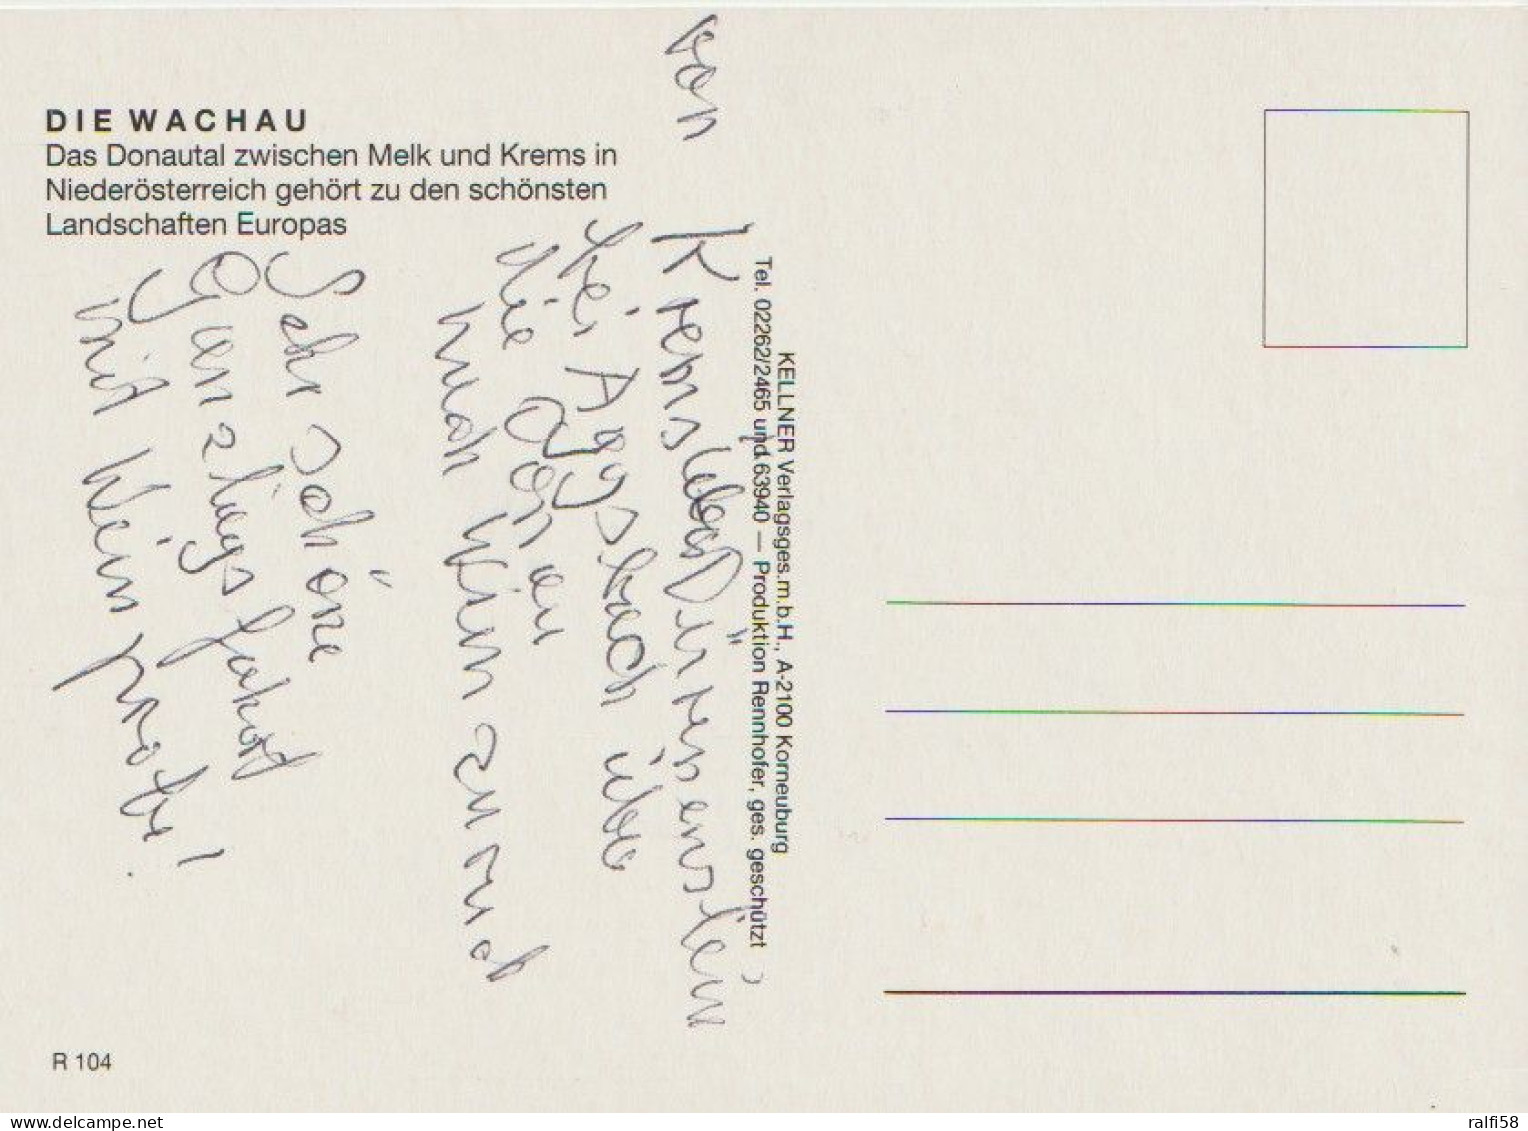 DIE WACHAU
Das Donautal zwischen Melk und Krems in
Niederösterreich gehört zu den schönsten
Landschaften Europas
von
Krems über Dürnstein,
bei Aggsbach über
die Donau
nach Wien zurück
Sehr schöne
Ganztagsfahrt
mit Weinprobe!
KELLNER Verlagsges.m.b.H., A-2100 Korneuburg
Tel. 02262/2465 und 63940 — Produktion Rennhofer, ges. geschützt
R 104
www.delcampe.net
ralfi58